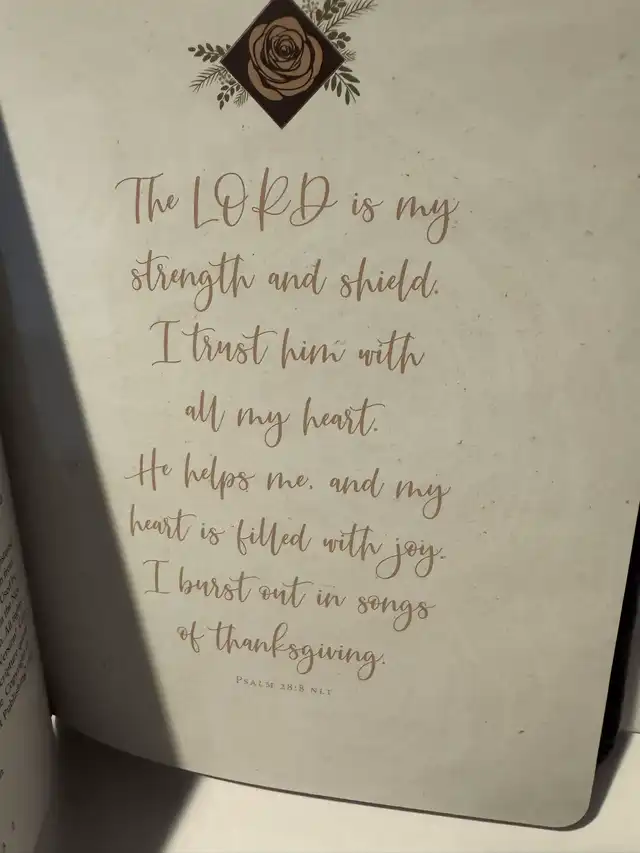 The LORD is my
strength and shield.
I trust him with
all my heart.
He helps me, and my
heart is filled with joy.
I burst out in songs
of thanksgiving.
Psalm 28:8 NLT